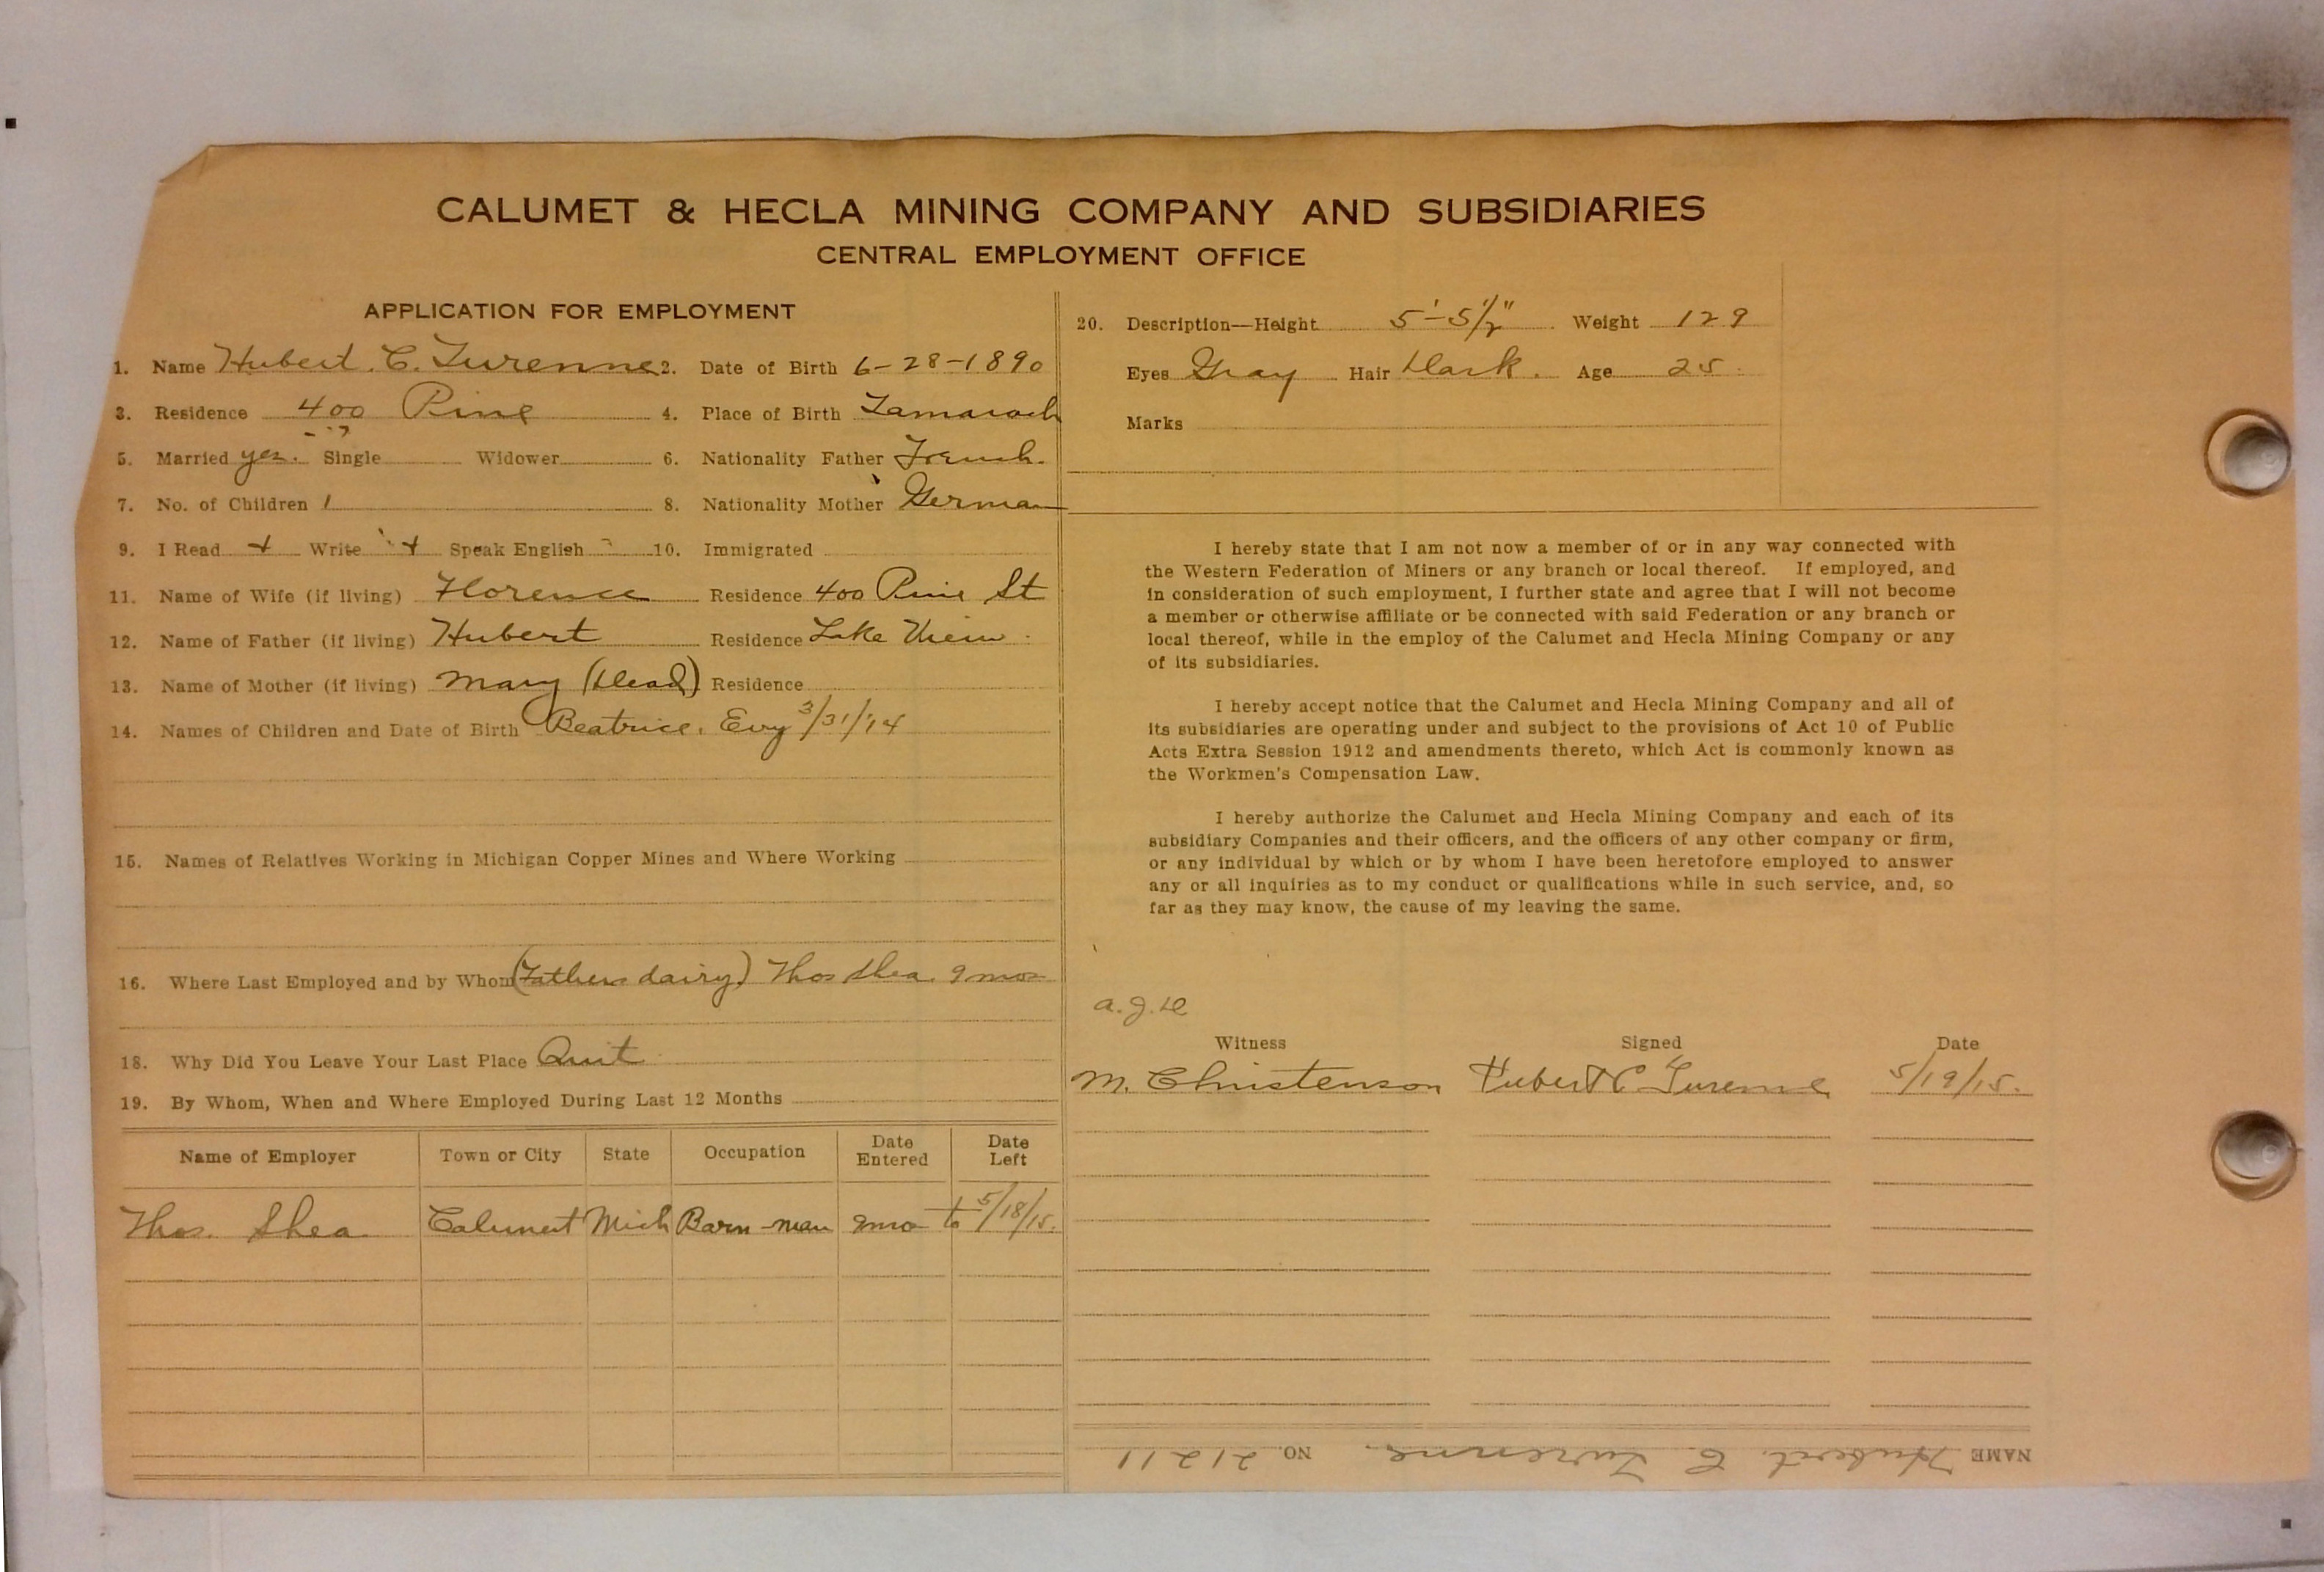 CALUMET & HECLA MINING COMPANY AND SUBSIDIARIES
CENTRAL EMPLOYMENT OFFICE
APPLICATION FOR EMPLOYMENT
1. Name Hubert. C. Turenne 2. Date of Birth 6-28-1890
3. Residence 400 Pine 4. Place of Birth Tamarack
5. Married yes. Single Widower 6. Nationality Father French.
7. No. of Children 1 8. Nationality Mother German
9. I Read + Write + Speak English 10. Immigrated
11. Name of Wife (if living) Florence Residence 400 Pine St
12. Name of Father (if living) Hubert Residence Lake View
13. Name of Mother (if living) Mary (Dead) Residence
14. Names of Children and Date of Birth Beatrice, Evy 3/31/14
15. Names of Relatives Working in Michigan Copper Mines and Where Working
16. Where Last Employed and by Whom (Fathers dairy) Thos Shea 9 mos
18. Why Did You Leave Your Last Place Quit
19. By Whom, When and Where Employed During Last 12 Months
Name of Employer Town or City State Occupation Date Entered Date Left
Thos. Shea Calumet Mich Barn-man 9mo to 5/18/15.
20. Description—Height 5'-5 1/2" Weight 129
Eyes Gray Hair Dark. Age 25
Marks
I hereby state that I am not now a member of or in any way connected with
the Western Federation of Miners or any branch or local thereof. If employed, and
in consideration of such employment, I further state and agree that I will not become
a member or otherwise affiliate or be connected with said Federation or any branch or
local thereof, while in the employ of the Calumet and Hecla Mining Company or any
of its subsidiaries.
I hereby accept notice that the Calumet and Hecla Mining Company and all of
its subsidiaries are operating under and subject to the provisions of Act 10 of Public
Acts Extra Session 1912 and amendments thereto, which Act is commonly known as
the Workmen's Compensation Law.
I hereby authorize the Calumet and Hecla Mining Company and each of its
subsidiary Companies and their officers, and the officers of any other company or firm,
or any individual by which or by whom I have been heretofore employed to answer
any or all inquiries as to my conduct or qualifications while in such service, and, so
far as they may know, the cause of my leaving the same.
Witness Signed Date
M. Christenson Hubert C Turenne 5/19/15.
NAME Hubert. C. Turenne. NO. 21211